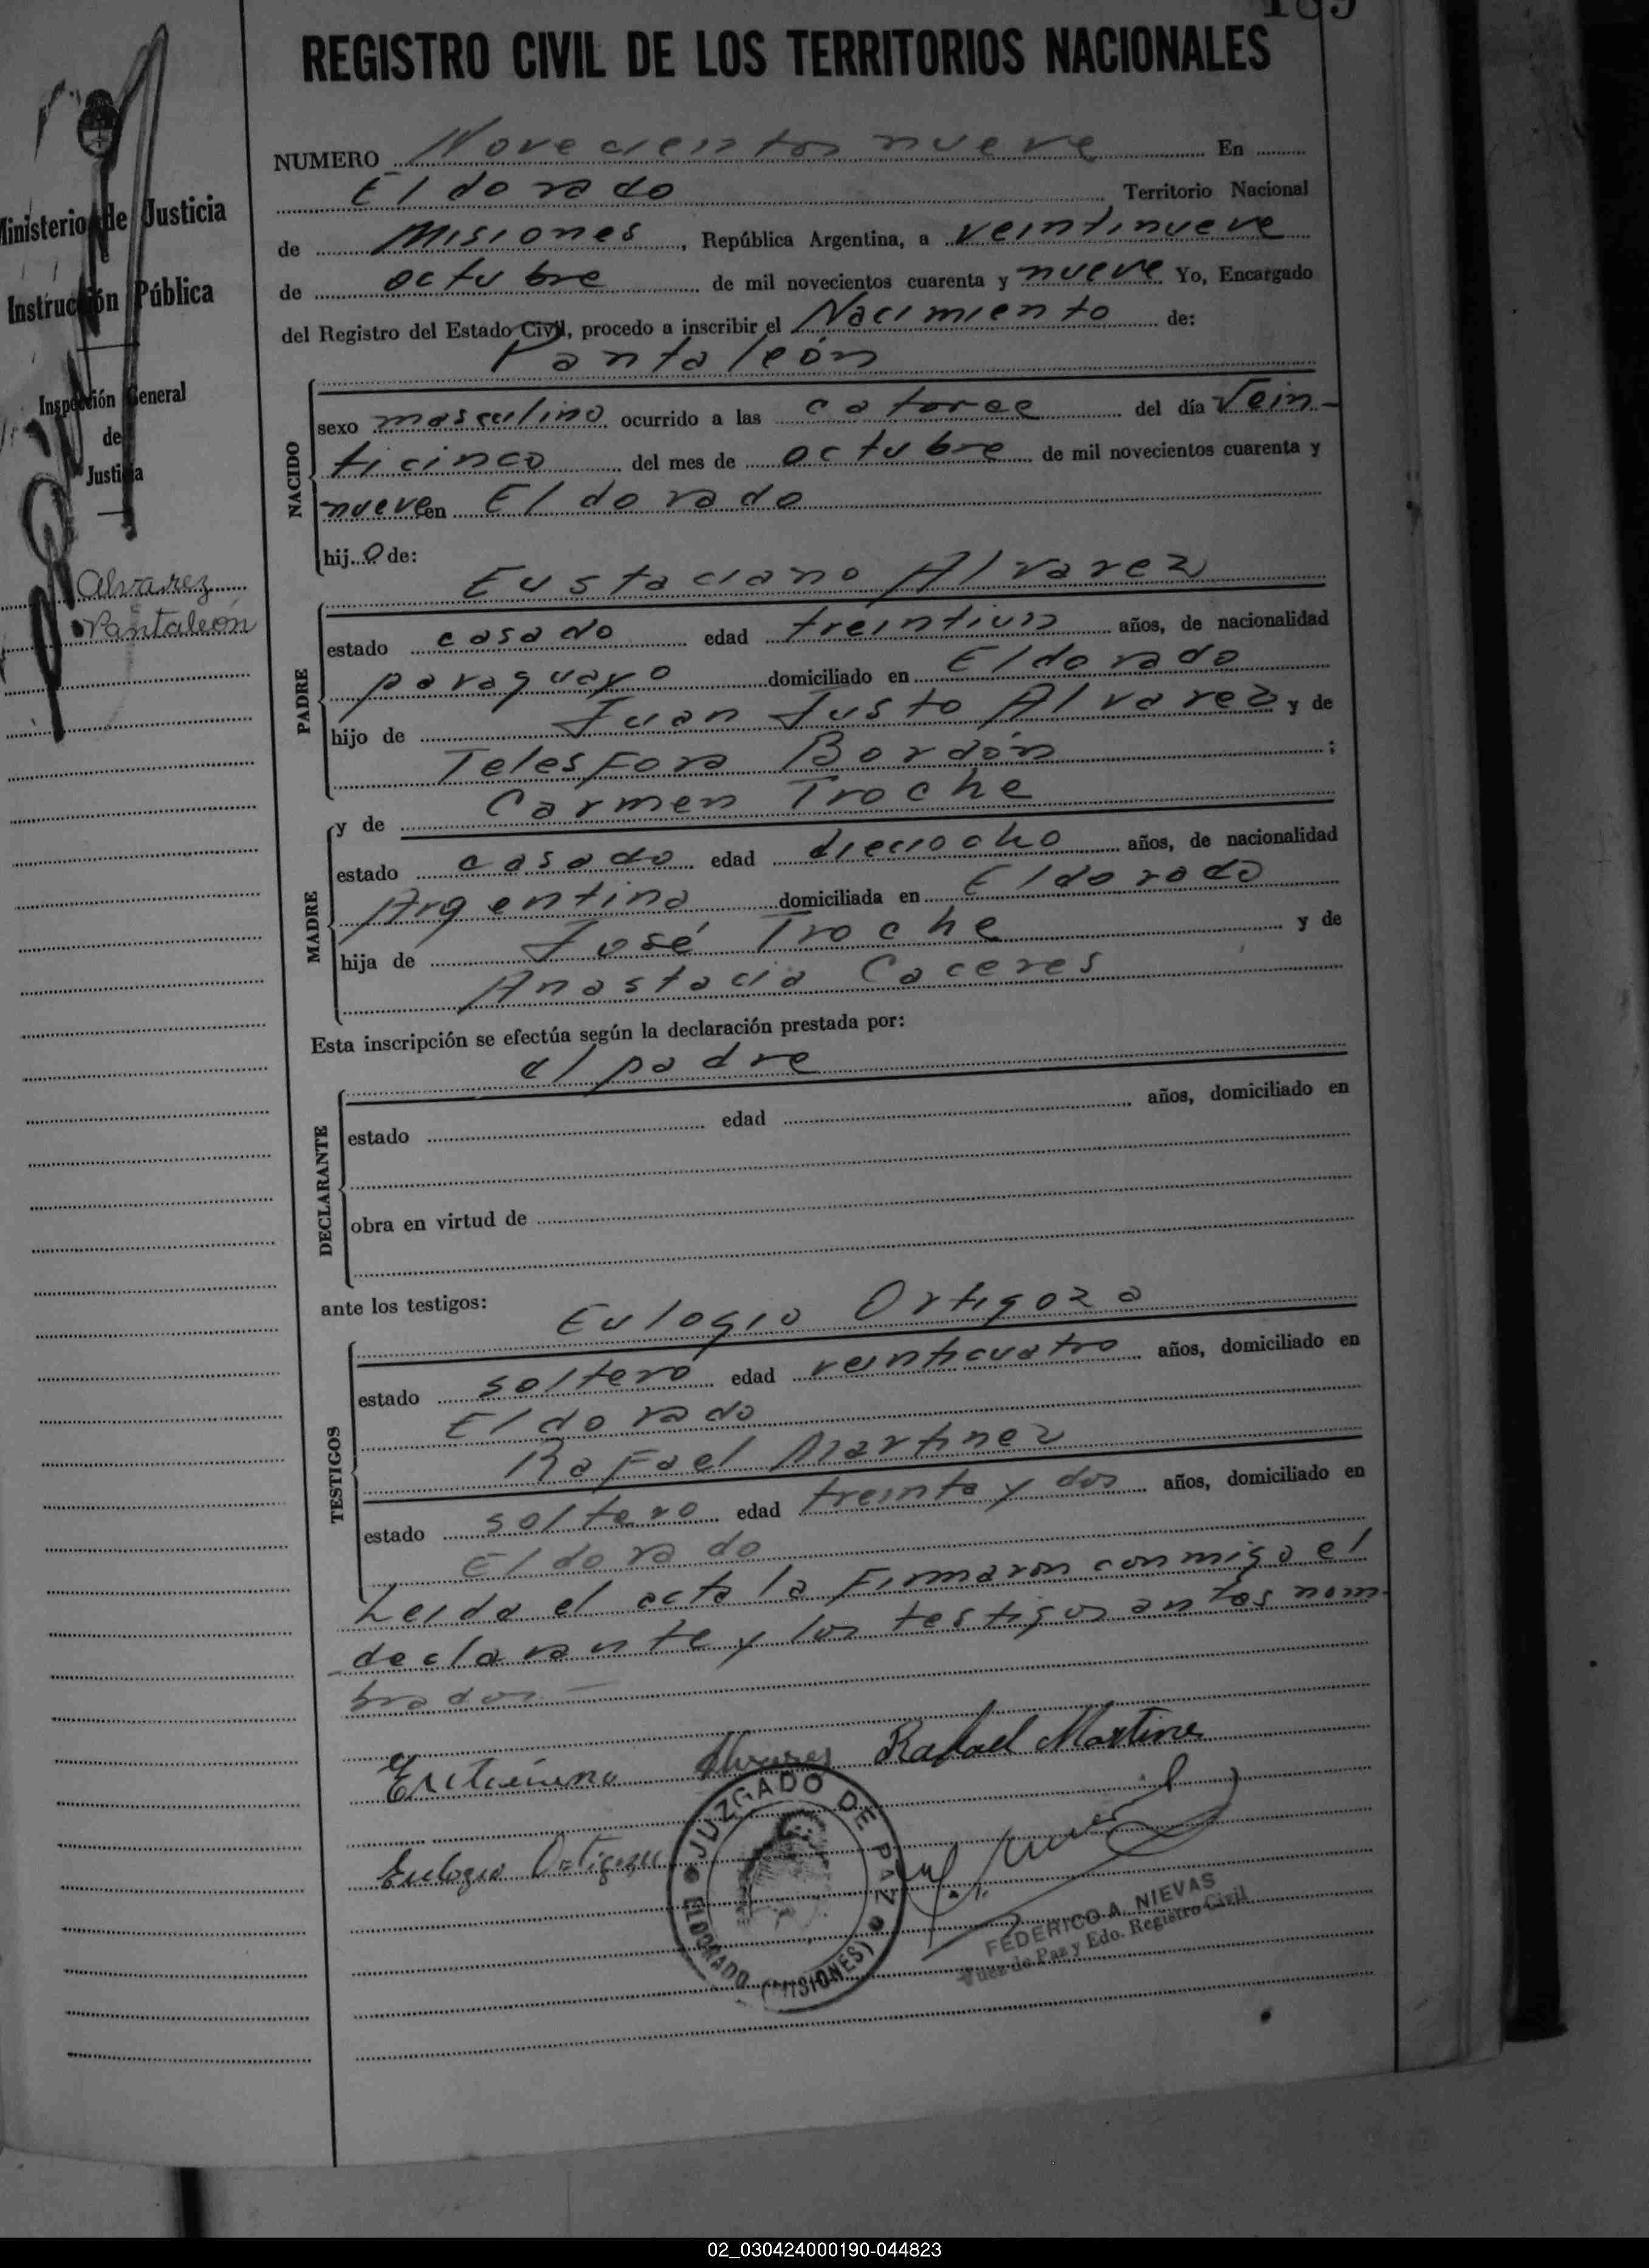 189
REGISTRO CIVIL DE LOS TERRITORIOS NACIONALES
Ministerio de Justicia
Instrucción Pública
Inspección General
de
Justicia
Alvarez
Pantaleón
NUMERO Novecientos nueve En
Eldorado Territorio Nacional
de Misiones, República Argentina, a veintinueve
de octubre de mil novecientos cuarenta y nueve Yo, Encargado
del Registro del Estado Civil, procedo a inscribir el Nacimiento de:
Pantaleón
NACIDO
sexo masculino ocurrido a las catorce del día Vein-
ticinco del mes de octubre de mil novecientos cuarenta y
nueve en Eldorado
hij o de:
Eustaciano Alvarez
PADRE
estado casado edad treintiun años, de nacionalidad
paraguayo domiciliado en Eldorado
hijo de Juan Justo Alvarez y de
Telesfora Bordón ;
y de Carmen Troche
MADRE
estado casada edad dieciocho años, de nacionalidad
Argentina domiciliada en Eldorado
hija de José Troche y de
Anastacia Caceres
Esta inscripción se efectúa según la declaración prestada por:
el padre
DECLARANTE
estado edad años, domiciliado en
obra en virtud de
ante los testigos:
Eulogio Ortigoza
TESTIGOS
estado soltero edad veinticuatro años, domiciliado en
Eldorado
Rafael Martinez
estado soltero edad treinta y dos años, domiciliado en
Eldorado
Leida el acta la Firmaron conmigo el
declarante y los testigos antes nom-
brados.—
Alvarez Rafael Martinez
Eulogio Ortigoza
JUZGADO DE PAZ
ELDORADO (MISIONES)
FEDERICO A. NIEVAS
Juez de Paz y Edo. Registro Civil
02_030424000190-044823